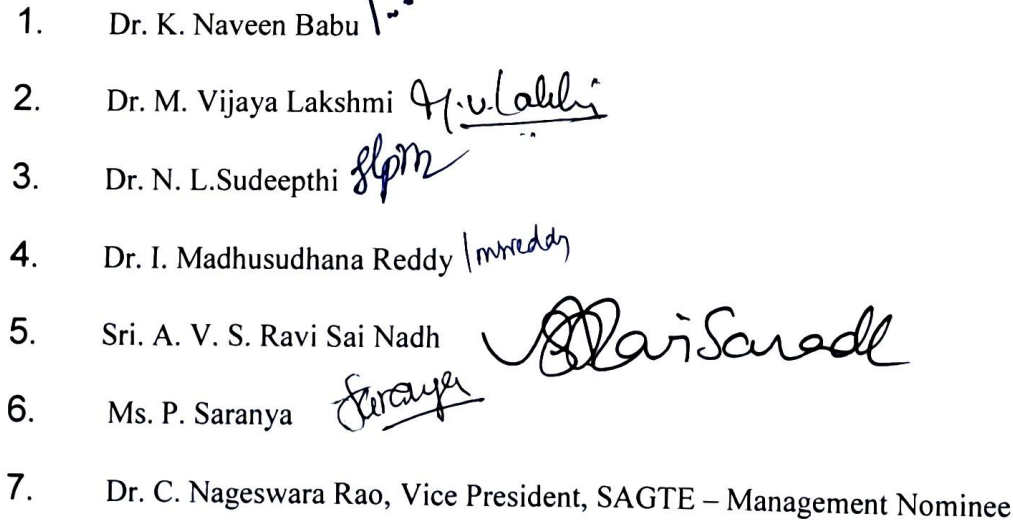 1. Dr. K. Naveen Babu
2. Dr. M. Vijaya Lakshmi M.V.Lakshmi
3. Dr. N. L.Sudeepthi
4. Dr. I. Madhusudhana Reddy
5. Sri. A. V. S. Ravi Sai Nadh
6. Ms. P. Saranya Saranya
7. Dr. C. Nageswara Rao, Vice President, SAGTE – Management Nominee